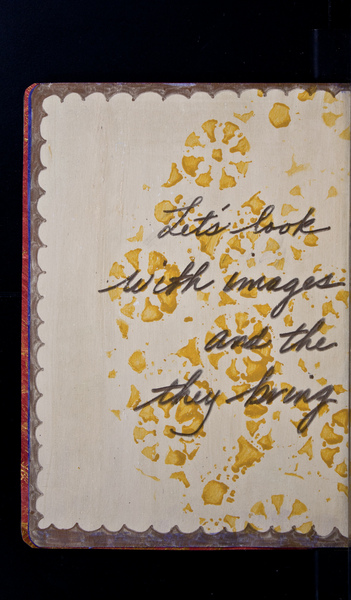 Let's look
with images
and the
they bring